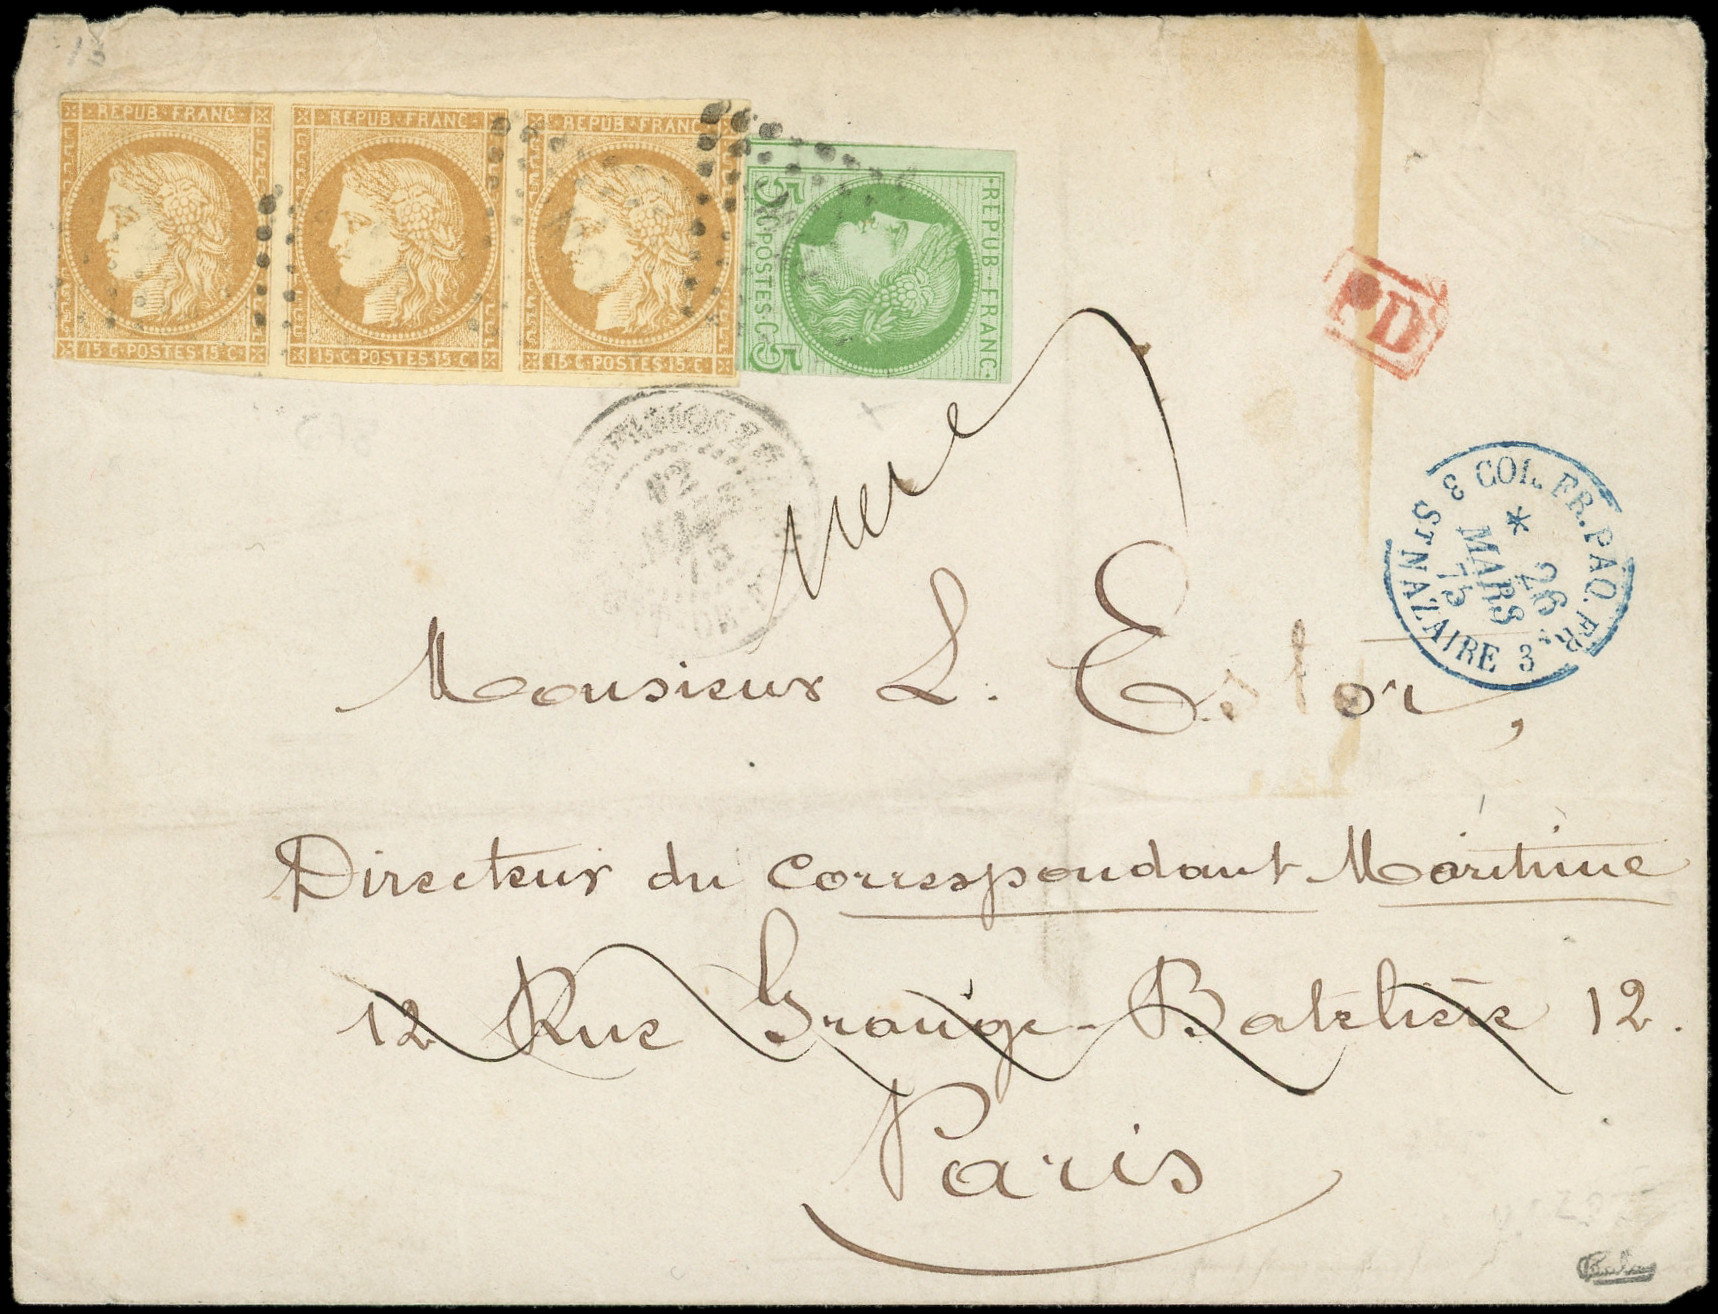 REPUB·FRANC
15·C·POSTES·15·C·
REPUB·FRANC·
15·C·POSTES·15·C·
REPUB·FRANC
15·C·POSTES·15·C·
·REPUB·FRANC·
5 C·POSTES·C· 5
PD
COL. FR. PAQ. FR.
* 26
MARS
75
ST NAZAIRE 3
Monsieur L. Estor,
Directeur du Correspondant Maritime
12 Rue Grange-Batelière 12.
Paris